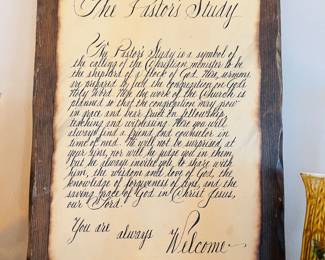 The Pastor's Study
The Pastor's Study is a symbol of
the calling of the Christian minister to be
the shepherd of a flock of God. Here, sermons
are prepared to feed the congregation on God's
Holy Word. Here the work of the Church is
planned so that the congregation may grow
in grace and bear fruit in fellowship,
teaching and witnessing. Here you will
always find a friend and counselor in
time of need. He will not be surprised at
your sins, nor will he judge you in them
but he always invites you to share with
him, the wisdom and love of God, the
knowledge of forgiveness of sins, and the
saving grace of God in Christ Jesus,
our Lord.
You are always Welcome